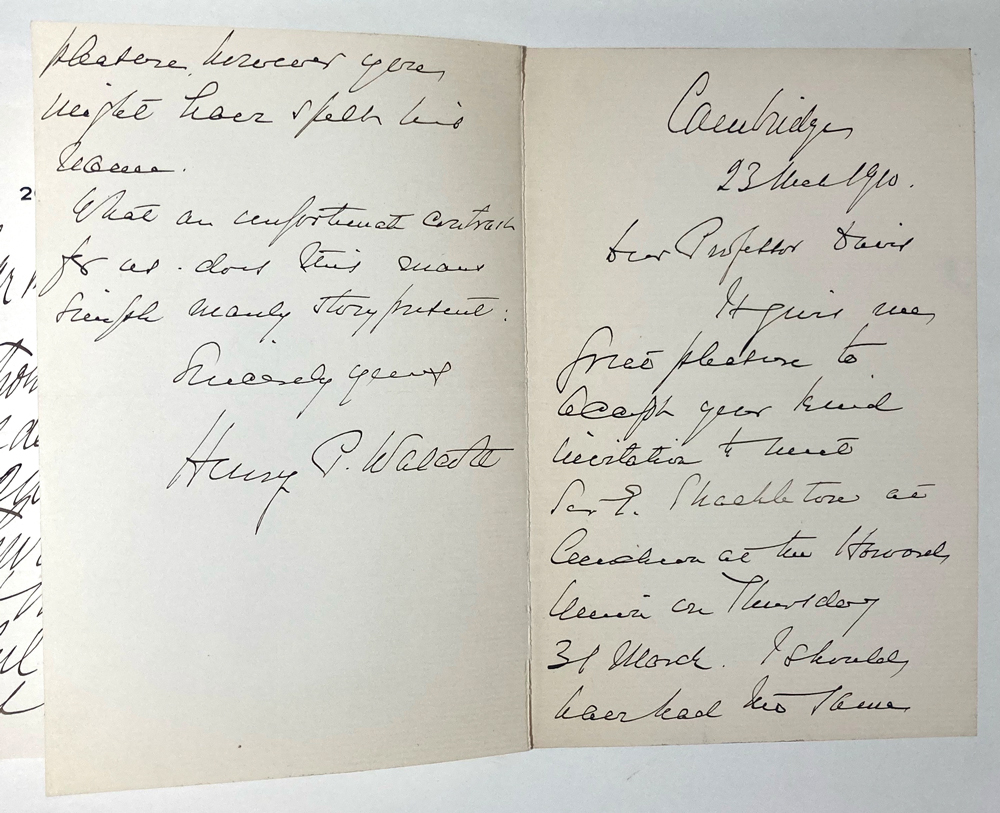 Cambridge
23 Mch 1910.
Dear Professor Davis
It gives me
great pleasure to
accept your kind
invitation to meet
Sir E. Shackleton at
luncheon at the Harvard
Union on Thursday
31 March. I should
have had the same
pleasure, however you
might have spelt his
name.
What an unfortunate contrast
for us does this man's
simple manly story present:
Sincerely yours
Henry P. Walcott